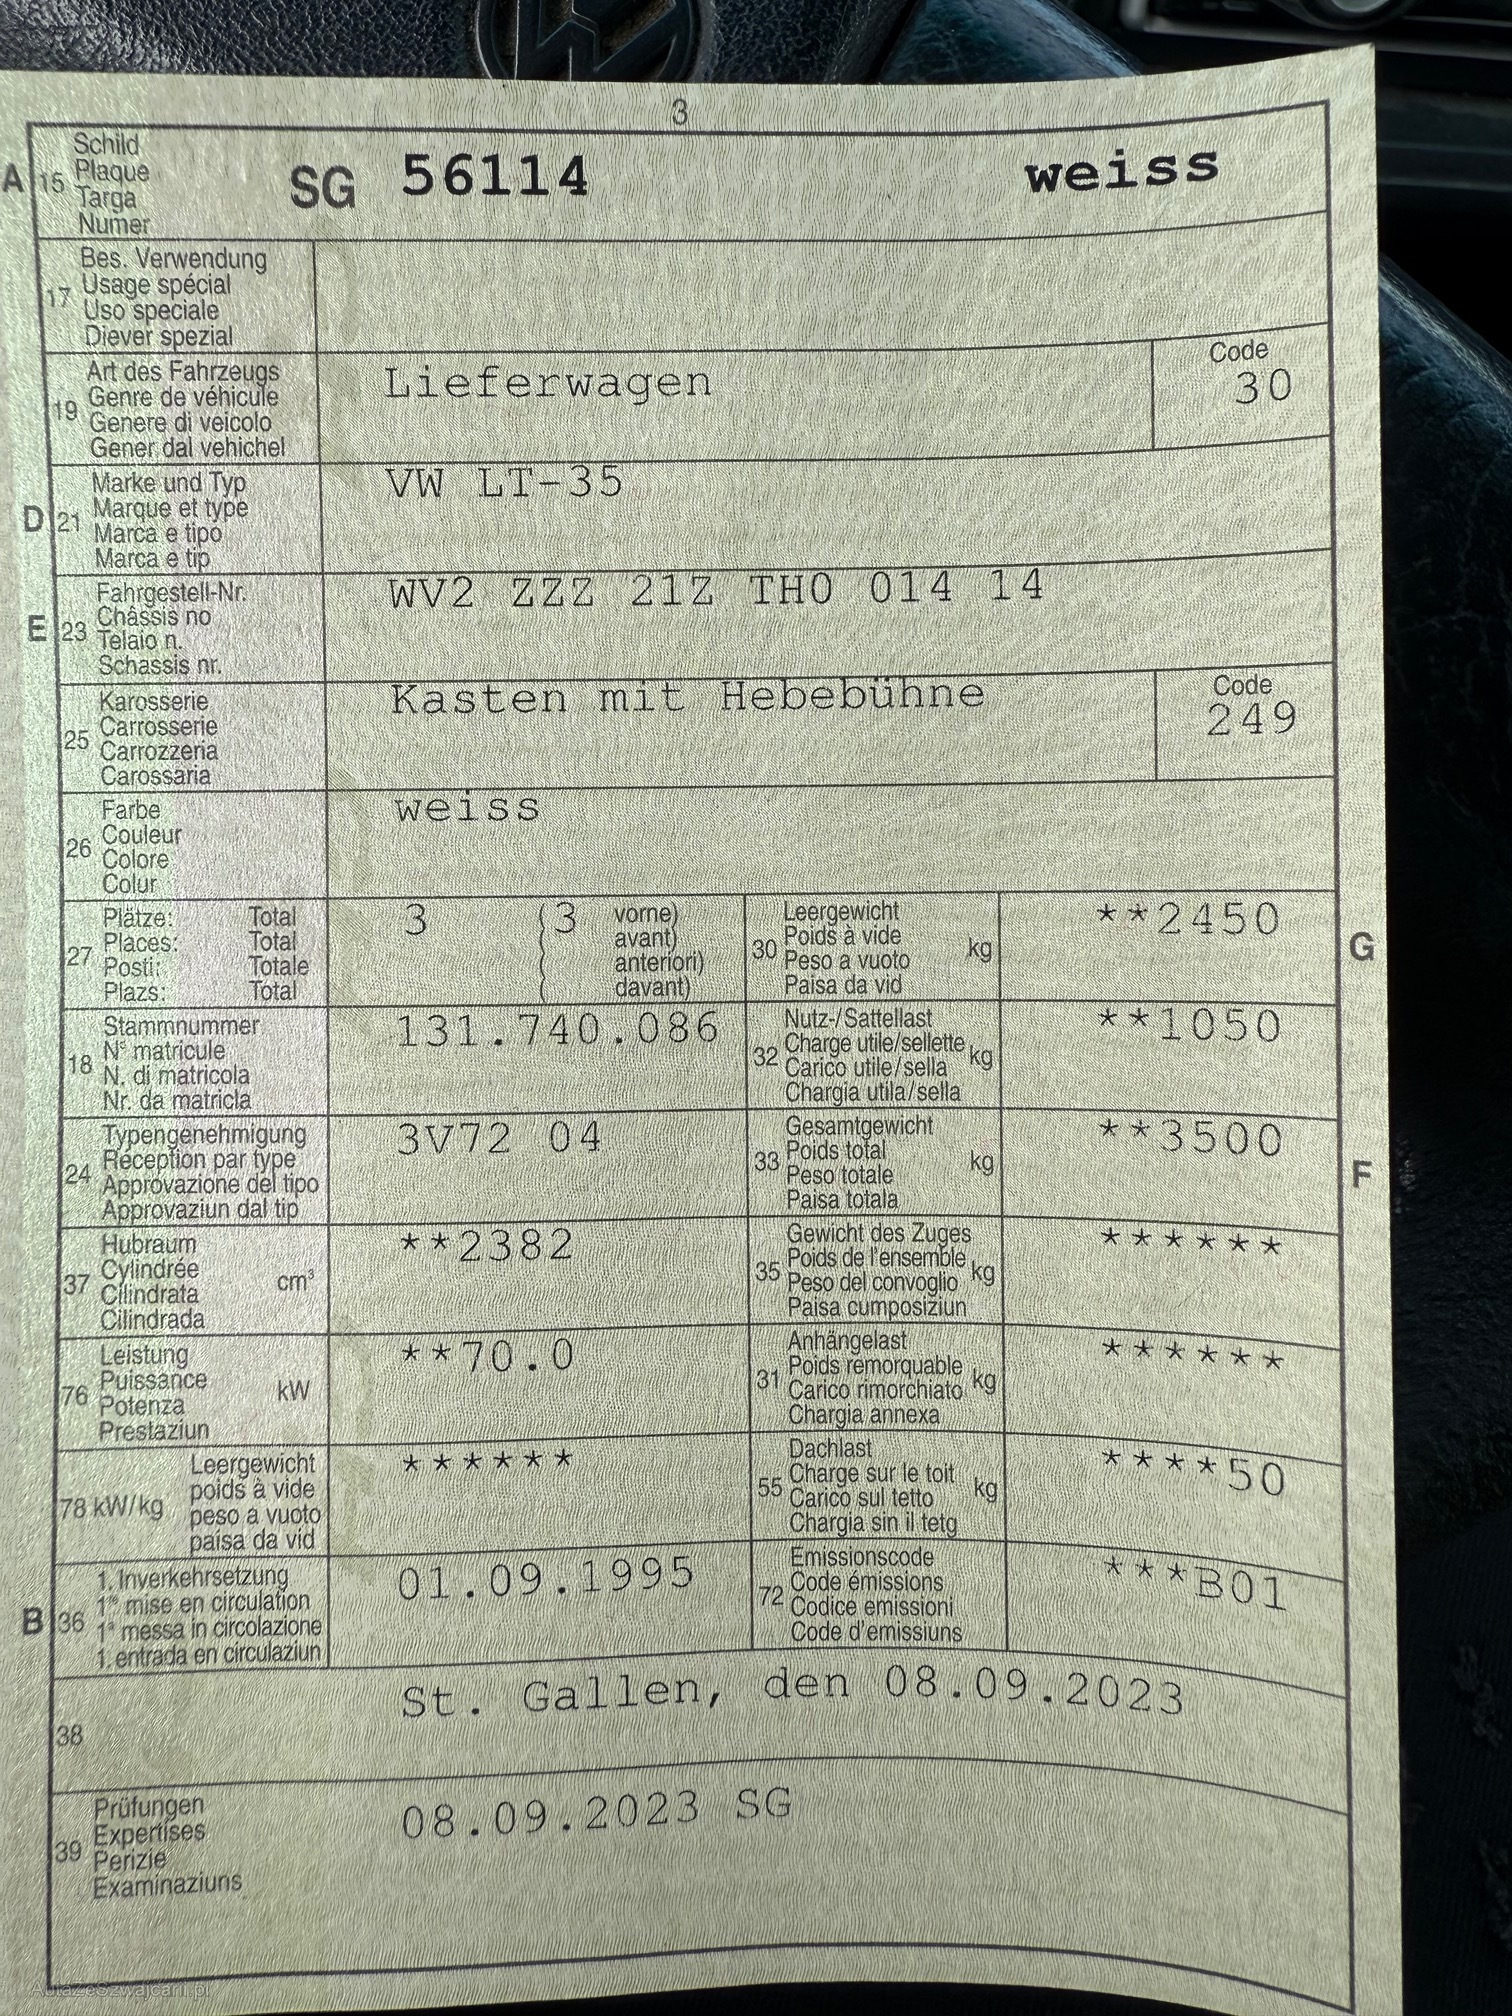 3
A 15 Schild
Plaque
Targa
Numer
SG 56114 weiss
17 Bes. Verwendung
Usage spécial
Uso speciale
Diever spezial
19 Art des Fahrzeugs
Genre de véhicule
Genere di veicolo
Gener dal vehichel
Lieferwagen
Code
30
D 21 Marke und Typ
Marque et type
Marca e tipo
Marca e tip
VW LT-35
E 23 Fahrgestell-Nr.
Châssis no
Telaio n.
Schassis nr.
WV2 ZZZ 21Z TH0 014 14
25 Karosserie
Carrosserie
Carrozzeria
Carossaria
Kasten mit Hebebühne
Code
249
26 Farbe
Couleur
Colore
Colur
weiss
27 Plätze: Total
Places: Total
Posti: Totale
Plazs: Total
3 (3 vorne)
( avant)
( anteriori)
( davant)
30 Leergewicht
Poids à vide
Peso a vuoto
Paisa da vid
kg
**2450
G
18 Stammnummer
N° matricule
N. di matricola
Nr. da matricla
131.740.086
32 Nutz-/Sattellast
Charge utile/sellette
Carico utile/sella
Chargia utila/sella
kg
**1050
24 Typengenehmigung
Réception par type
Approvazione del tipo
Approvaziun dal tip
3V72 04
33 Gesamtgewicht
Poids total
Peso totale
Paisa totala
kg
**3500
F
37 Hubraum
Cylindrée
Cilindrata
Cilindrada
cm³
**2382
35 Gewicht des Zuges
Poids de l'ensemble
Peso del convoglio
Paisa cumposiziun
kg
******
76 Leistung
Puissance
Potenza
Prestaziun
kW
**70.0
31 Anhängelast
Poids remorquable
Carico rimorchiato
Chargia annexa
kg
******
78 kW/kg Leergewicht
poids à vide
peso a vuoto
paisa da vid
******
55 Dachlast
Charge sur le toit
Carico sul tetto
Chargia sin il tetg
kg
****50
B 36 1. Inverkehrsetzung
1re mise en circulation
1a messa in circolazione
1. entrada en circulaziun
01.09.1995
72 Emissionscode
Code émissions
Codice emissioni
Code d'emissiuns
***B01
38 St. Gallen, den 08.09.2023
39 Prüfungen
Expertises
Perizie
Examinaziuns
08.09.2023 SG
AutazeSzwajcarii.pl